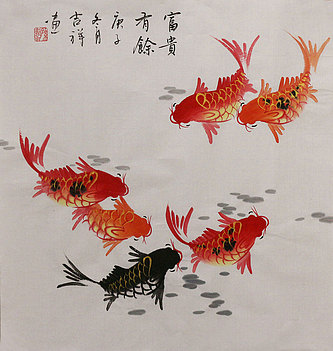 富貴
有餘
庚子
冬月
吉祥
畫